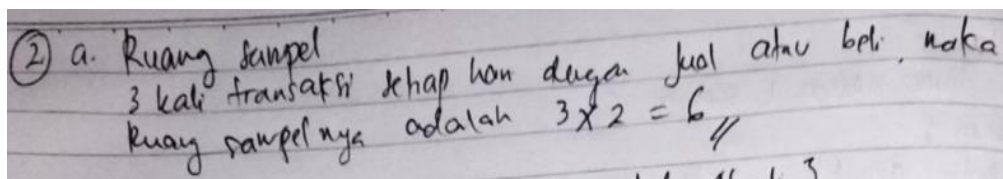 ② a. Ruang sampel
3 kali transaksi setiap hari dengan Jual atau beli, maka
Ruang sampelnya adalah 3 x 2 = 6 //